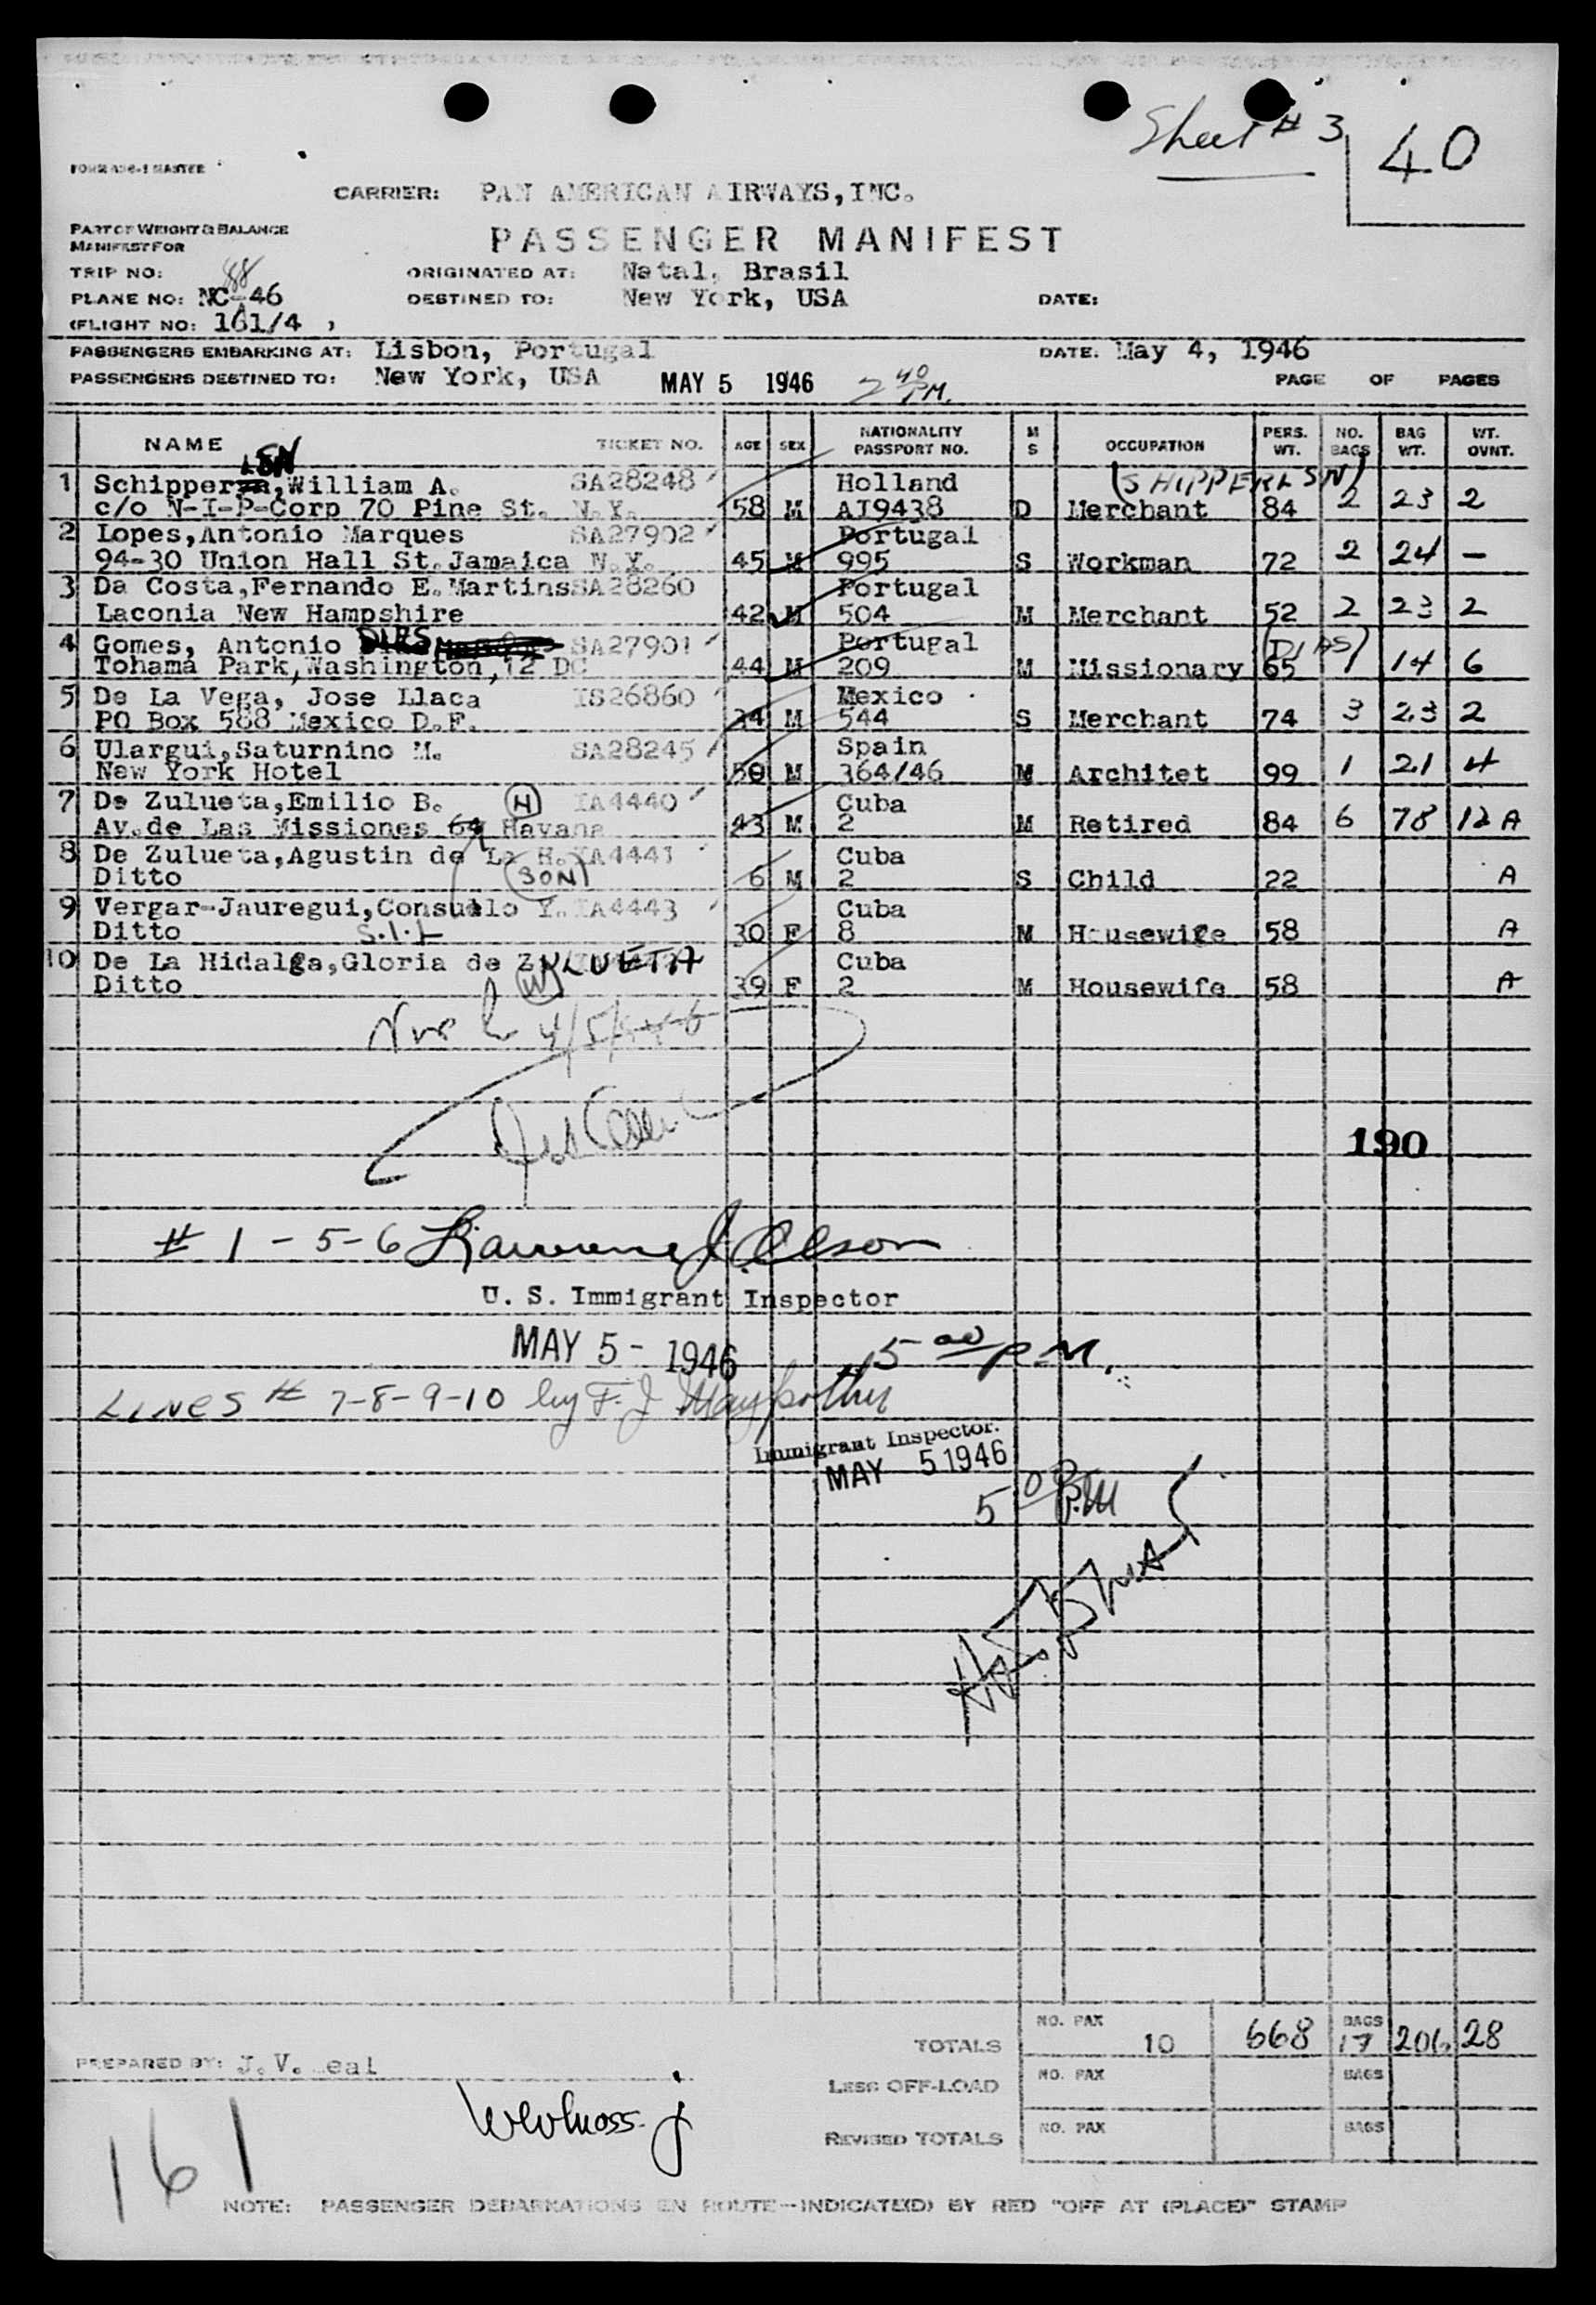 Sheet # 3
40
FORM 436-1 MASTER
CARRIER: PAN AMERICAN AIRWAYS, INC.
PART OF WEIGHT & BALANCE
MANIFEST FOR
PASSENGER MANIFEST
TRIP NO: ORIGINATED AT: Natal, Brasil
88
PLANE NO: NC-46 DESTINED TO: New York, USA DATE:
(FLIGHT NO: 161/4 )
PASSENGERS EMBARKING AT: Lisbon, Portugal DATE: May 4, 1946
PASSENGERS DESTINED TO: New York, USA MAY 5 1946 2 40 PM. PAGE OF PAGES
NAME TICKET NO. AGE SEX NATIONALITY PASSPORT NO. M S OCCUPATION PERS. WT. NO. BAGS BAG WT. WT. OVNT.
LSN
(SHIPPERLSN)
1 Schipper, William A. SA28248 Holland
c/o N-I-P-Corp 70 Pine St. N.Y. 58 M AI9438 D Merchant 84 2 23 2
2 Lopes, Antonio Marques SA27902 Portugal
94-30 Union Hall St. Jamaica N.Y. 45 M 995 S Workman 72 2 24 —
3 Da Costa, Fernando E. Martins SA28260 Portugal
Laconia New Hampshire 42 M 504 M Merchant 52 2 23 2
4 Gomes, Antonio DIAS SA27901 Portugal (DIAS)
Tohama Park, Washington, 12 DC 44 M 209 M Missionary 65 1 14 6
5 De La Vega, Jose Llaca IS26860 Mexico
PO Box 588 Mexico D.F. 34 M 544 S Merchant 74 3 23 2
6 Ulargui, Saturnino M. SA28245 Spain
New York Hotel 50 M 364/46 M Architet 99 1 21 4
7 De Zulueta, Emilio B. (H) IA4440 Cuba
Av. de Las Missiones 64 Havana 43 M 2 M Retired 84 6 78 12 A
8 De Zulueta, Agustin de La H. IA4441 Cuba
Ditto (SON) 6 M 2 S Child 22 A
9 Vergar-Jauregui, Consuelo Y. IA4443 Cuba
Ditto S.I.L 30 F 8 M Housewife 58 A
10 De La Hidalga, Gloria de ZULUETA Cuba
Ditto (W) 39 F 2 M Housewife 58 A
4/5/1946
190
# 1 - 5 - 6 Lawrence J. Olson
U. S. Immigrant Inspector
MAY 5 - 1946 5 00 P.M.
LINES # 7-8-9-10 by F. J. Maypother
Immigrant Inspector.
MAY 5 1946
5 00 P.M
TOTALS NO. PAX 10 668 BAGS 17 206 28
PREPARED BY: J.V. eal
LESS OFF-LOAD NO. PAX BAGS
REVISED TOTALS NO. PAX BAGS
161
NOTE: PASSENGER DEBARKATIONS EN ROUTE--INDICATE(D) BY RED "OFF AT (PLACE)" STAMP